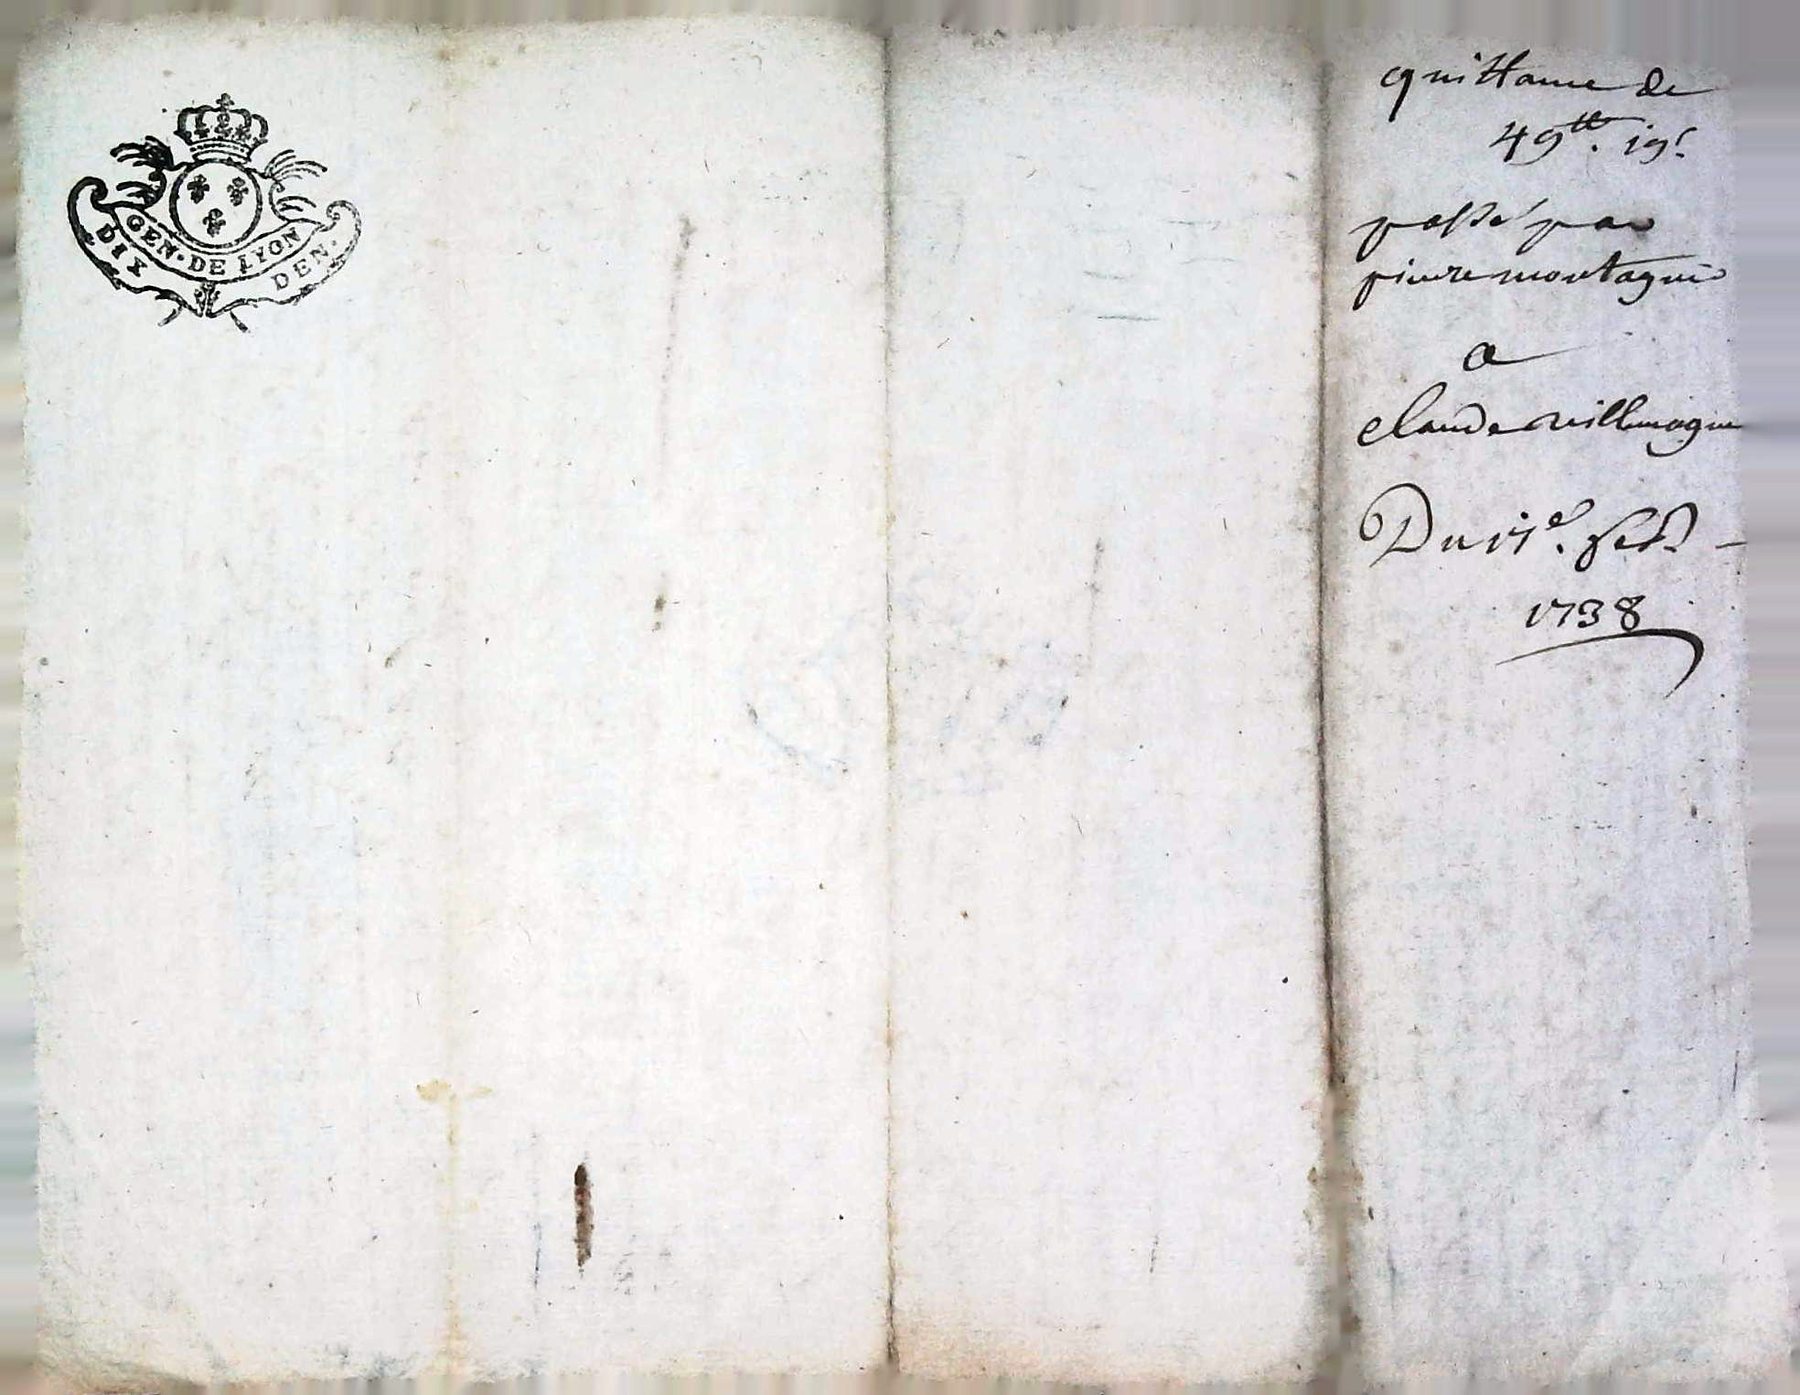 GEN. DE LYON
DIX DEN.
quittance de
49tt. 19s.
passé par
pierre montagnie
a
claude villemagne
Du 17e.
1738